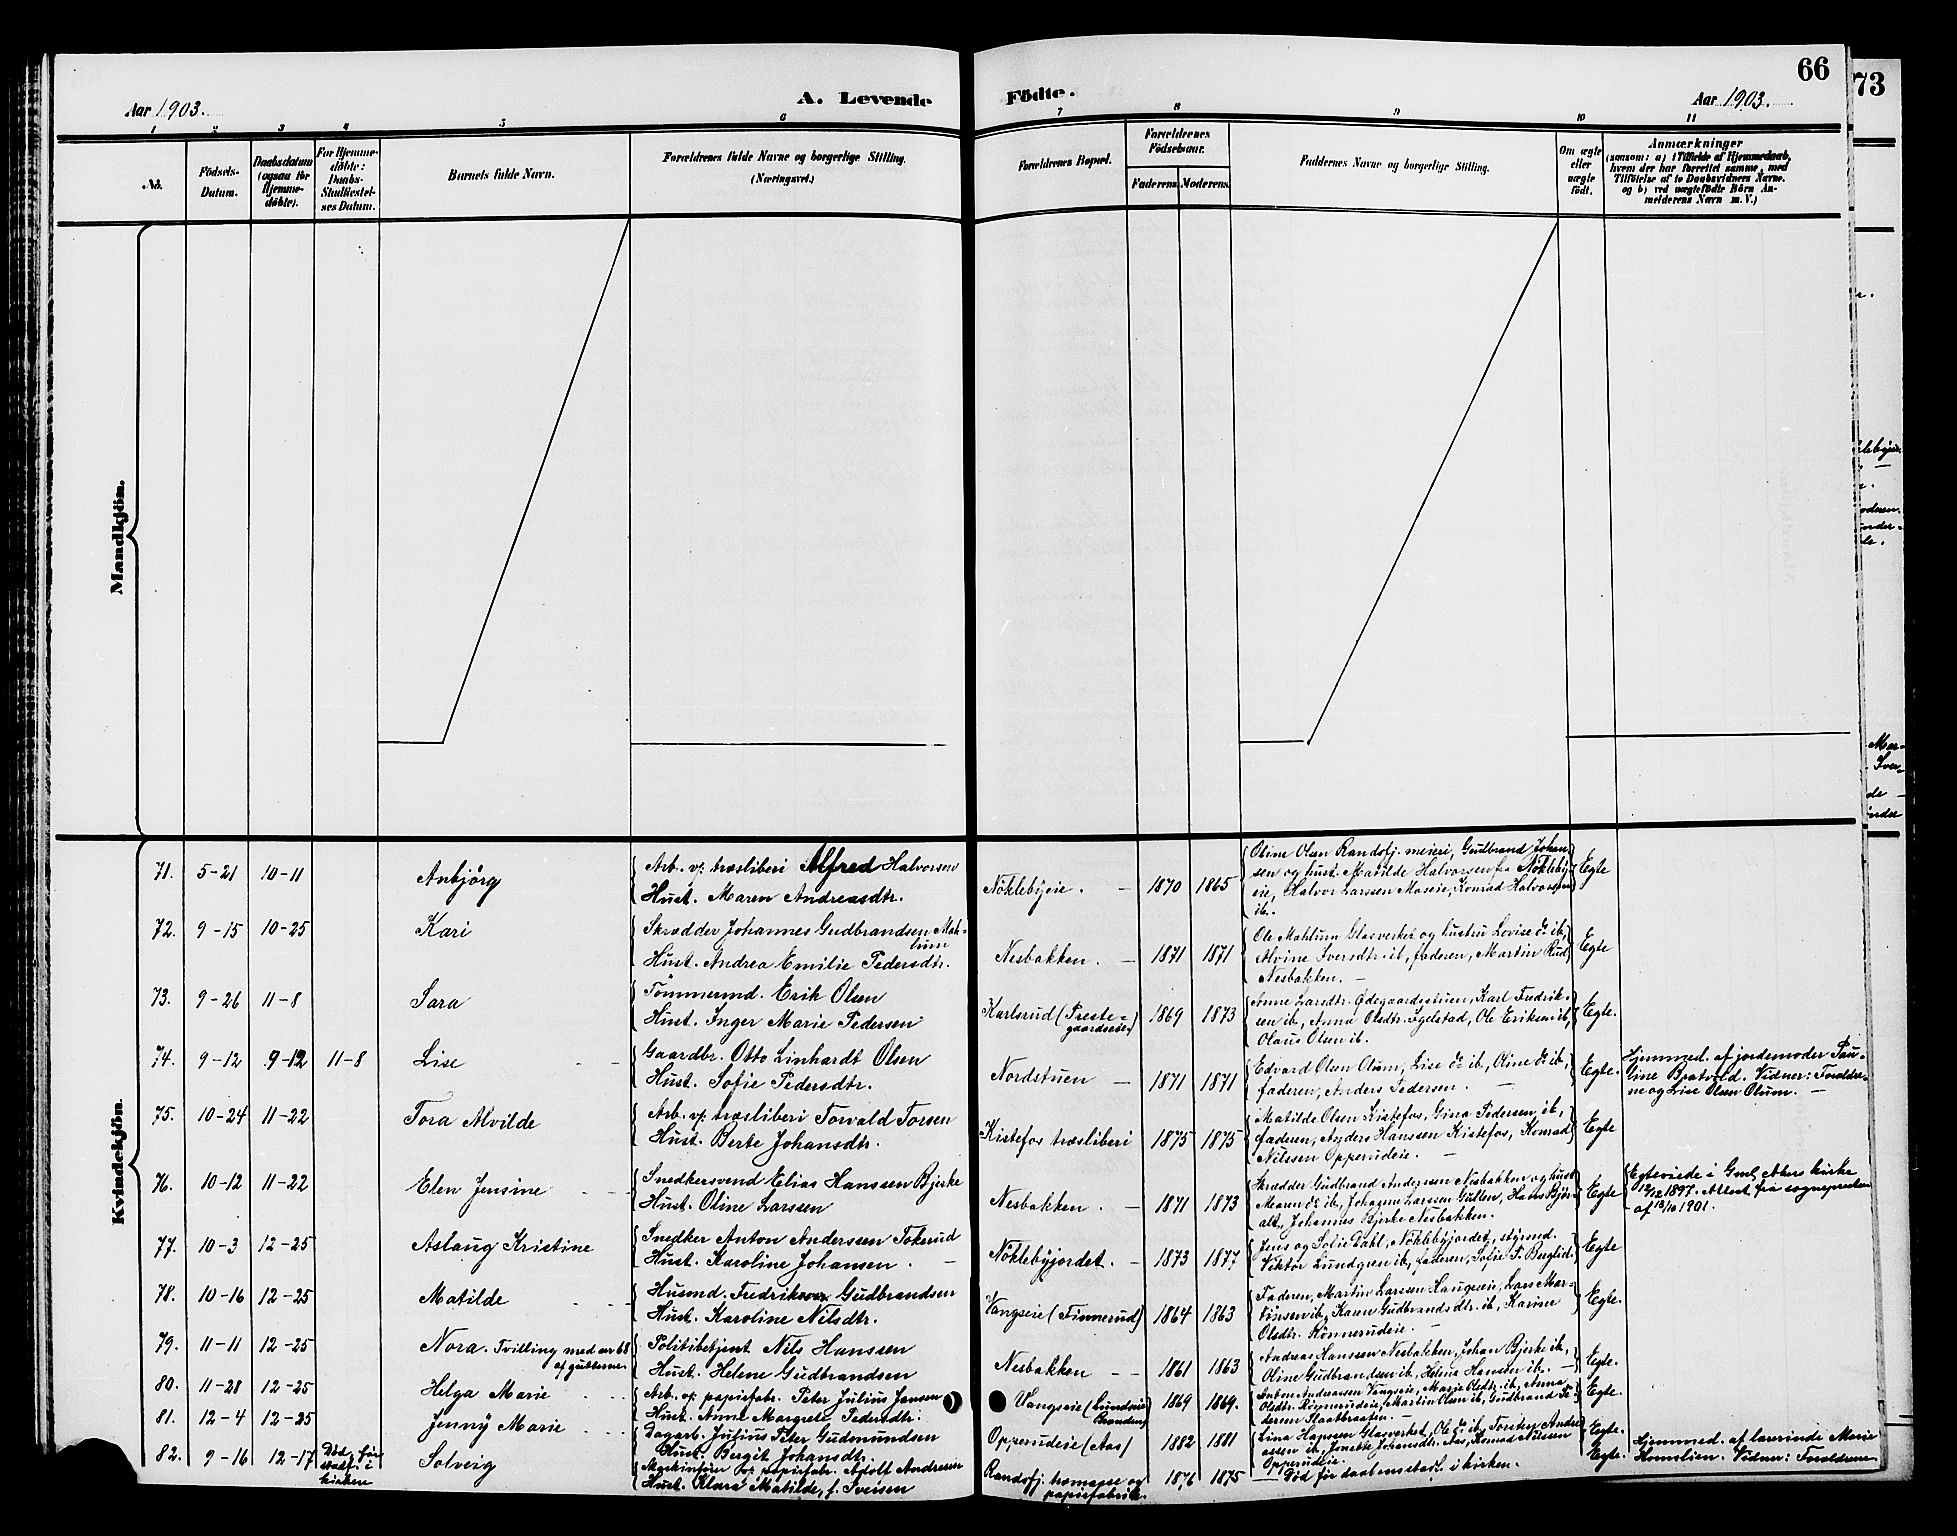 66
73
Aar 1903.
A. Levende
Födte.
Aar 1903.
1 2 3 4 5 6 7 8 9 10 11
No.
Födsels-
Datum.
Daabsdatum
(ogsaa for
Hjemme-
døbte).
For Hjemme-
døbte:
Daabs-
Stadfæstel-
ses Datum.
Barnets fulde Navn.
Forældrenes fulde Navne og borgerlige Stilling.
(Næringsvei.)
Forældrenes Bopæl.
Forældrenes
Födselsaar.
Faderens. Moderens.
Faddernes Navne og borgerlige Stilling.
Om ægte
eller
uægte
født.
Anmærkninger
(saasom: a) i Tilfælde af Hjemmedaab,
hvem der har forrettet samme, med
Tilföielse af to Daabsvidners Navne,
og b) ved uægtefødte Börn An-
melderens Navn m. V.)
Mandkjön.
Kvindekjön.
71. 5-21 10-11
Anbjörg
Arb. v. træsliberi Alfred Halvorsen
Hust. Maren Andreasdtr.
Nöklebyeie. 1870 1865
Oline Olsen Randsfj. meieri, Gudbrand Johan
sen og hust. Matilde Halvorsen fra Nökleby-
eie, Halvor Larssen Moseie, Konrad Halvorssen
ib.
Egte
72. 9-15 10-25
Kari
Skrædder Johannes Gudbrandsen Mah-
lum
Hust. Andrea Emilie Pedersdtr.
Nesbakken. 1871 1871
Ole Mahlum Glasverket og hustru Lovise do ib,
Alvine Iversdtr. ib, faderen, Martin Rud
Nesbakken.
Egte
73. 9-26 11-8
Sara
Tömmermd. Erik Olsen
Hust. Inger Marie Pedersen
Karlsrud (Preste-
gaardseie) 1869 1873
Anne Larsdtr. Ødegaardsstuen, Karl Fredrik-
sen ib, Anna Olsdtr. Egelstad, Ole Eriksen ib,
Olaus Olsen ib.
Egte.
74. 9-12 9-12 11-8
Lise
Gaardbr. Otto Linhardt Olsen
Hust. Sofie Pedersdtr.
Nordstuen 1871 1871
Edvard Olsen Olum, Lise do ib, Oline do ib,
faderen, Anders Pedersen.
Egte.
Hjemmed. af jordemoder Pau-
line Bratvold. Vidner: Forældre-
ne og Lise Olsen Olum.
75. 10-24 11-22
Tora Alvilde
Arb. v. træsliberi Torvald Torsen
Hust. Berte Johansdtr.
Kistefos træsliberi 1875 1875
Matilde Olsen Kistefos, Gina Pedersen ib,
faderen, Anders Hanssen Kistefos, Konrad
Nilssen Opperudeie.
Egte
76. 10-12 11-22
Elen Jensine
Snedkersvend Elias Hanssen Bjerke
Hust. Oline Larssen
Nesbakken. 1871 1873
Skrædder Gudbrand Andersen Nesbakken og hust
Maren do ib, Johanne Larssen Gullen, Hans Björ-
alt, Johannes Bjerke Nesbakken.
Egte
Egteviede i Gml. Aker kirke
12/12 1897. Attest fra sognepresten
af 13/10 1901.
77. 10-3 12-25
Aslaug Kristine
Snedker Anton Anderssen Tokerud
Hust. Karoline Johansen.
Nöklebyjordet. 1873 1877
Jens og Sofie Dahl, Nöklebyjordet, styrmd.
Viktor Lundgren ib, faderen, Sofie F. Berglid.
Egte
78. 10-16 12-25
Matilde
Husmd. Fredrik Gudbrandsen
Hust. Karoline Nilsdtr.
Vangseie (Finnerud) 1864 1863
Faderen, Martin Larssen Haugseie, Lars Mar-
tinsen ib, Karen Gudbrandsdtr. ib, Karine
Olsdtr. Rönnerudeie.
Egte.
79. 11-11 12-25
Nora. Tvilling med nr 68
af gutterne.
Politibetjent Nils Hanssen
Hust. Helene Gudbrandsen
Nesbakken 1861 1863
Andreas Hanssen Nesbakken, Johan Bjerke ib,
Oline Gudbrandsen ib, Helene Hansen ib.
Egte.
80. 11-28 12-25
Helga Marie
Arb. v. papirfabr. Peter Julius Jensen
Hust. Anne Margrete Pedersdtr.
Vangseie (Lundseie
Branden) 1869 1869.
Anton Andreassen Vangseie, Marie Olsdtr. ib, Anna
Olsdtr. Rönnerudeie, Martin Olsen ib, Gudbrand Pe-
dersen Staatbraaten.
Egte.
81. 12-4 12-25
Jenny Marie
Dagarb. Julius Peter Gudmundsen
Hust. Bergit Johansdtr.
Opperudeie (Aas) 1882 1881
Lina Hansen Glasverket, Ole do ib, Torsten Andre
assen ib, Jensette Johansdtr. Aas, Konrad Nilssen
Opperudeie.
Egte.
82. 9-16 12-17
Död, för
stadf. i
kirken
Solveig
Maskinförer v. papirfabr. Adolf Andresen
Hust. Klara Matilde, f. Iversen
Randsfj. træmasse og
papirfabrik. 1876 1875
Död för daabens stadf. i kirken.
Egte.
Hjemmed. af lærerinde Marie
Homslien. Vidner: Forældrene